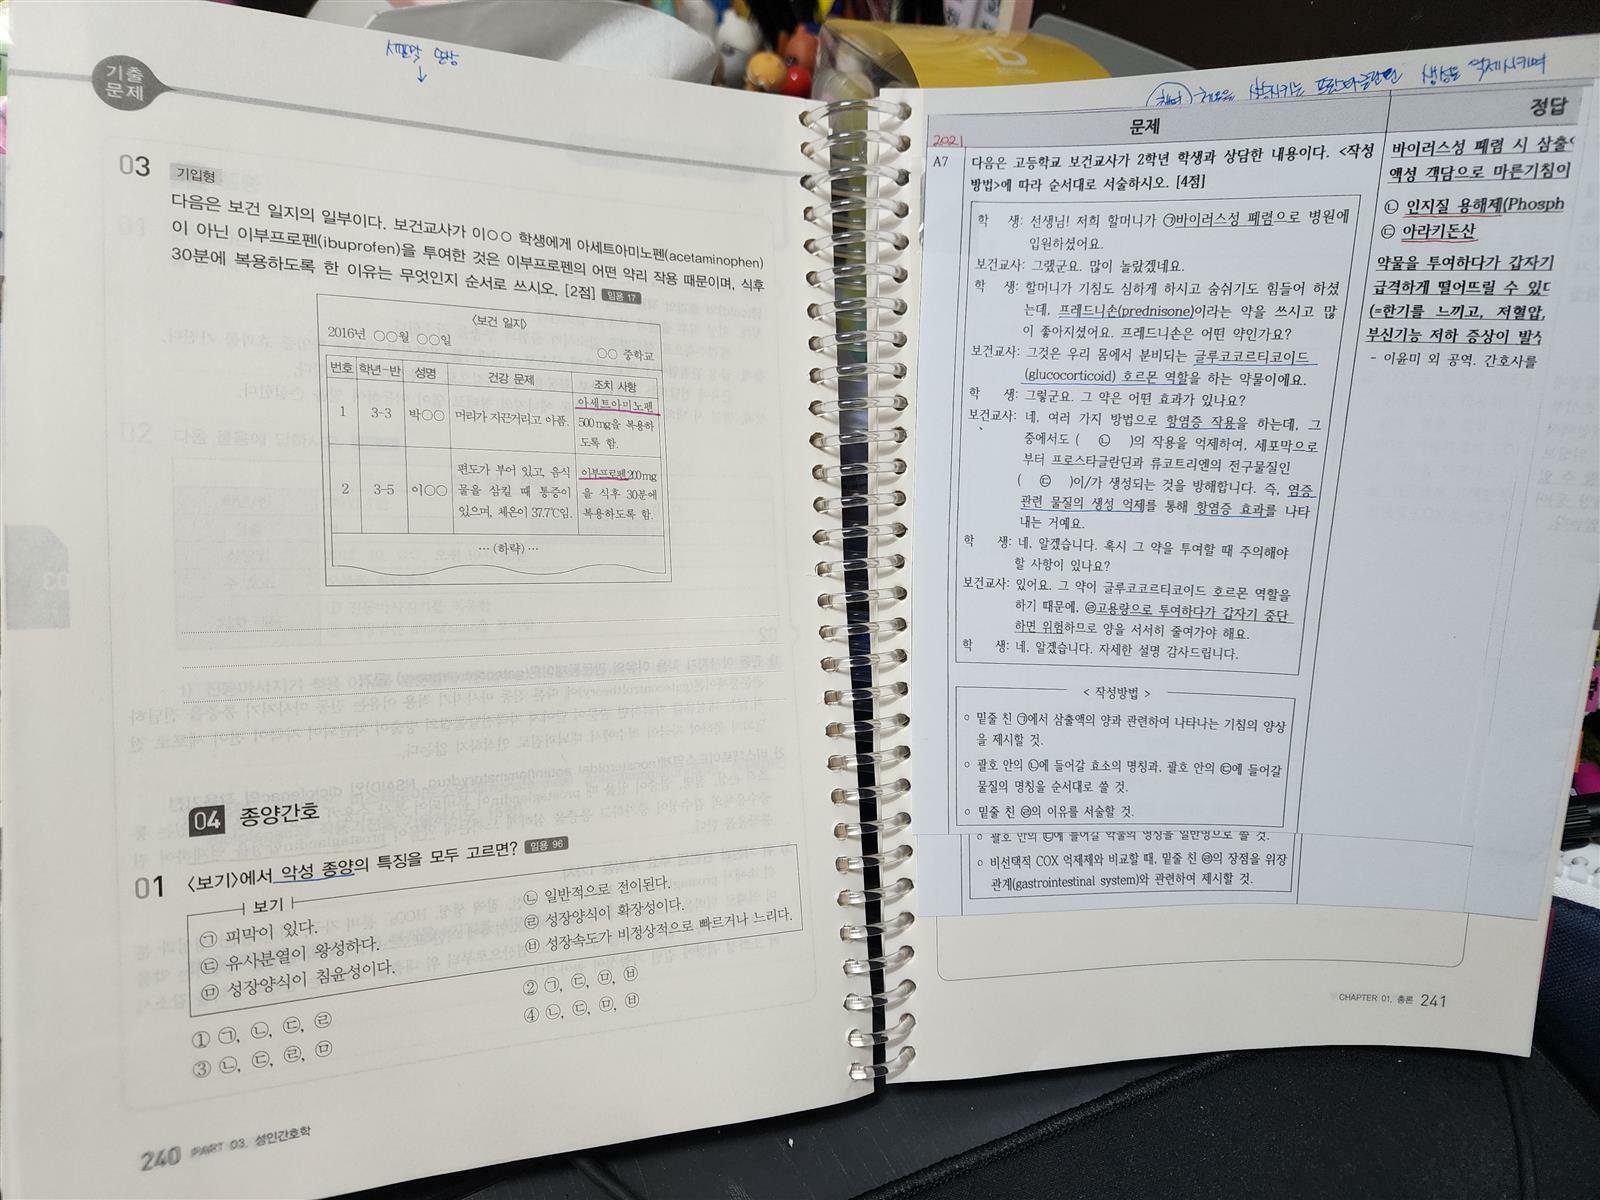 세포막 인상
↓
기출
문제
03 기입형
다음은 보건 일지의 일부이다. 보건교사가 이○○ 학생에게 아세트아미노펜(acetaminophen)
이 아닌 이부프로펜(ibuprofen)을 투여한 것은 이부프로펜의 어떤 약리 작용 때문이며, 식후
30분에 복용하도록 한 이유는 무엇인지 순서로 쓰시오. [2점] 임용 17
〈보건 일지〉
2016년 ○○월 ○○일
○○ 중학교
번호 학년-반 성명 건강 문제 조치 사항
1 3-3 박○○ 머리가 지끈거리고 아픔. 아세트아미노펜
500mg을 복용하
도록 함.
2 3-5 이○○ 편도가 부어 있고, 음식
물을 삼킬 때 통증이
있으며, 체온이 37.7℃임.
이부프로펜 200mg
을 식후 30분에
복용하도록 함.
… (하략) …
04 종양간호
01 〈보기〉에서 악성 종양의 특징을 모두 고르면? 임용 96
보기
㉠ 피막이 있다. ㉡ 일반적으로 전이된다.
㉢ 유사분열이 왕성하다. ㉣ 성장양식이 확장성이다.
㉤ 성장양식이 침윤성이다. ㉥ 성장속도가 비정상적으로 빠르거나 느리다.
① ㉠, ㉡, ㉢, ㉣ ② ㉠, ㉢, ㉤, ㉥
③ ㉡, ㉢, ㉣, ㉤ ④ ㉡, ㉢, ㉤, ㉥
240 PART 03. 성인간호학
체온을 상승시키는 프로스타글란딘 생성을 억제시키며
문제 정답
2021
A7 다음은 고등학교 보건교사가 2학년 학생과 상담한 내용이다. <작성
방법>에 따라 순서대로 서술하시오. [4점]
학 생: 선생님! 저희 할머니가 ㉠바이러스성 폐렴으로 병원에
입원하셨어요.
보건교사: 그랬군요. 많이 놀랐겠네요.
학 생: 할머니가 기침도 심하게 하시고 숨쉬기도 힘들어 하셨
는데, 프레드니손(prednisone)이라는 약을 쓰시고 많
이 좋아지셨어요. 프레드니손은 어떤 약인가요?
보건교사: 그것은 우리 몸에서 분비되는 글루코코르티코이드
(glucocorticoid) 호르몬 역할을 하는 약물이에요.
학 생: 그렇군요. 그 약은 어떤 효과가 있나요?
보건교사: 네, 여러 가지 방법으로 항염증 작용을 하는데, 그
중에서도 ( ㉡ )의 작용을 억제하여, 세포막으로
부터 프로스타글란딘과 류코트리엔의 전구물질인
( ㉢ )이/가 생성되는 것을 방해합니다. 즉, 염증
관련 물질의 생성 억제를 통해 항염증 효과를 나타
내는 거예요.
학 생: 네, 알겠습니다. 혹시 그 약을 투여할 때 주의해야
할 사항이 있나요?
보건교사: 있어요. 그 약이 글루코코르티코이드 호르몬 역할을
하기 때문에, ㉣고용량으로 투여하다가 갑자기 중단
하면 위험하므로 양을 서서히 줄여가야 해요.
학 생: 네, 알겠습니다. 자세한 설명 감사드립니다.
< 작성방법 >
○ 밑줄 친 ㉠에서 삼출액의 양과 관련하여 나타나는 기침의 양상
을 제시할 것.
○ 괄호 안의 ㉡에 들어갈 효소의 명칭과, 괄호 안의 ㉢에 들어갈
물질의 명칭을 순서대로 쓸 것.
○ 밑줄 친 ㉣의 이유를 서술할 것.
○ 괄호 안의 ㉢에 들어갈 약물의 명칭을 일반명으로 쓸 것.
○ 비선택적 COX 억제제와 비교할 때, 밑줄 친 ㉣의 장점을 위장
관계(gastrointestinal system)와 관련하여 제시할 것.
바이러스성 폐렴 시 삼출
액성 객담으로 마른기침이
㉡ 인지질 용해제(Phosph
㉢ 아라키돈산
약물을 투여하다가 갑자기
급격하게 떨어뜨릴 수 있다
(=한기를 느끼고, 저혈압,
부신기능 저하 증상이 발
- 이윤미 외 공역. 간호사를
CHAPTER 01. 총론 241